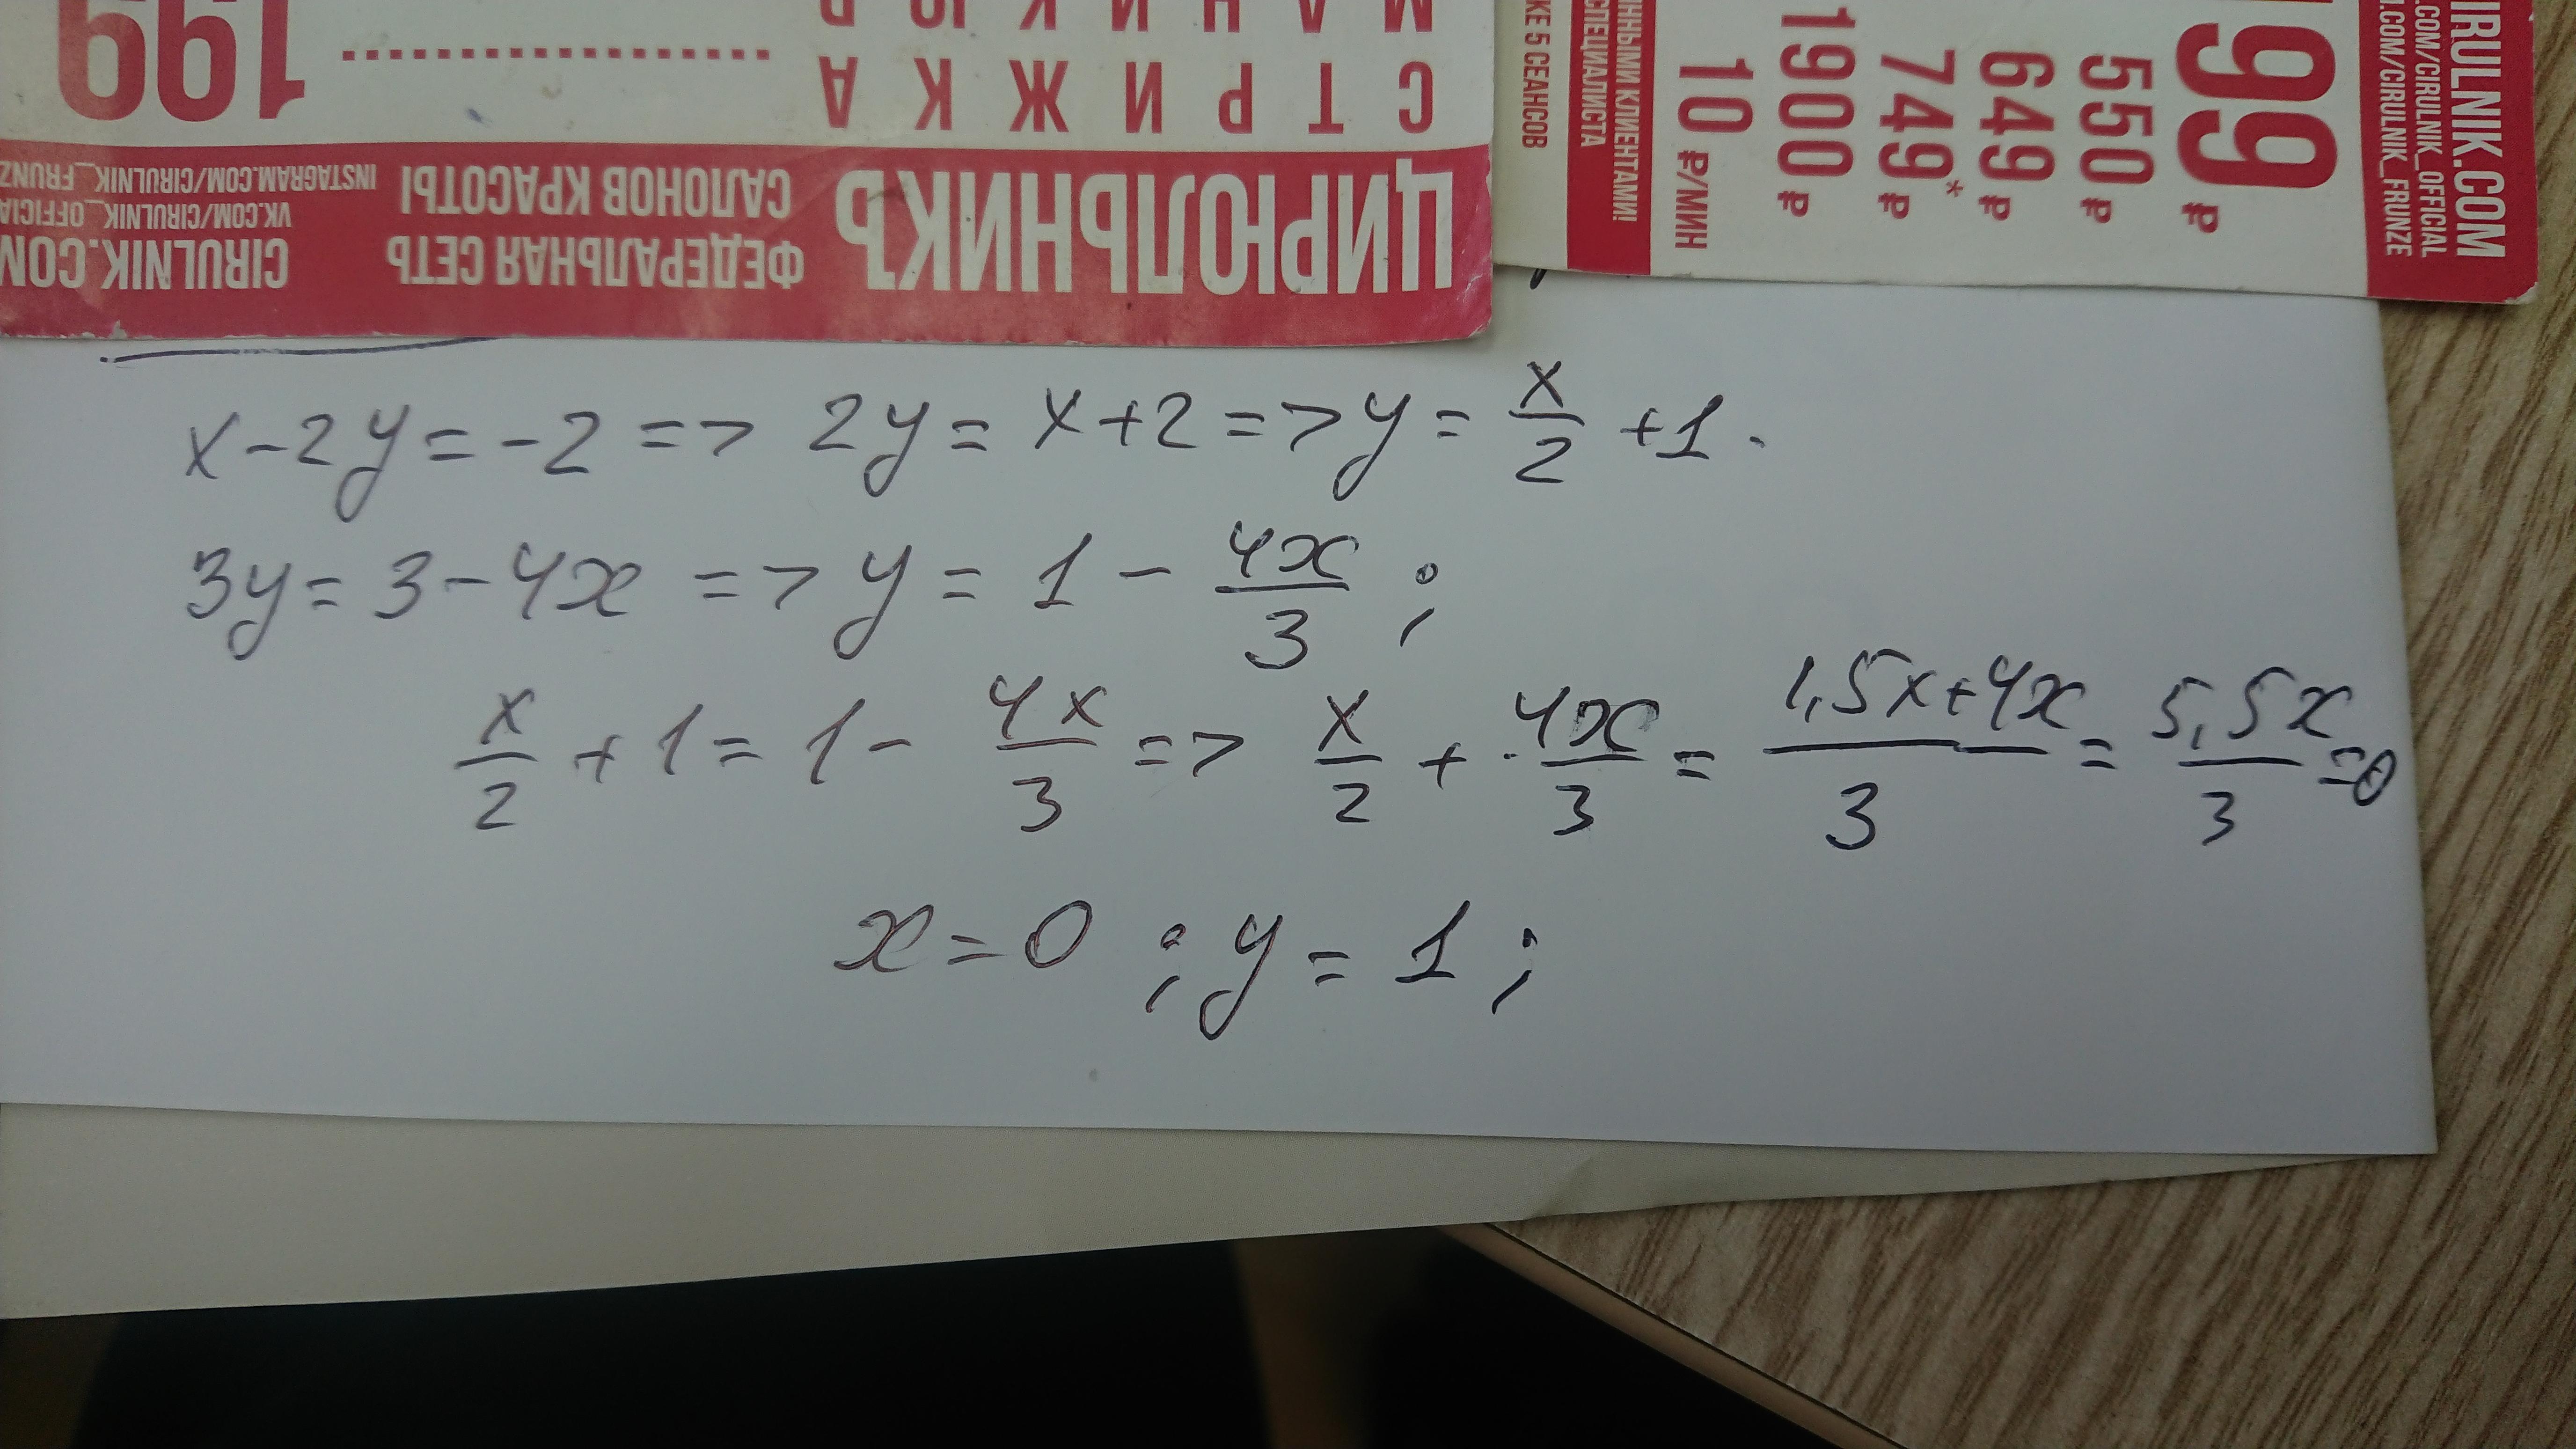 199 ........................ СТРИЖКА
CIRULNIK.COM
VK.COM/CIRULNIK_OFFICIA
INSTAGRAM.COM/CIRULNIK_FRUNZ
ФЕДЕРАЛЬНАЯ СЕТЬ
САЛОНОВ КРАСОТЫ
ЦИРЮЛЬНИКЪ
IRULNIK.COM
.COM/CIRULNIK_OFFICIAL
.COM/CIRULNIK_FRUNZE
99 ₽
550 ₽
649 ₽
749* ₽
1900 ₽
10 ₽/МИН
ННЫМИ КЛИЕНТАМИ!
СПЕЦИАЛИСТА
КЕ 5 СЕАНСОВ
x-2y=-2 => 2y=x+2 => y= x/2 +1.
3y=3-4x => y=1- 4x/3 ;
x/2 +1=1- 4x/3 => x/2 + 4x/3 = 1,5x+4x/3 = 5,5x/3 =0
x=0 ; y=1 ;